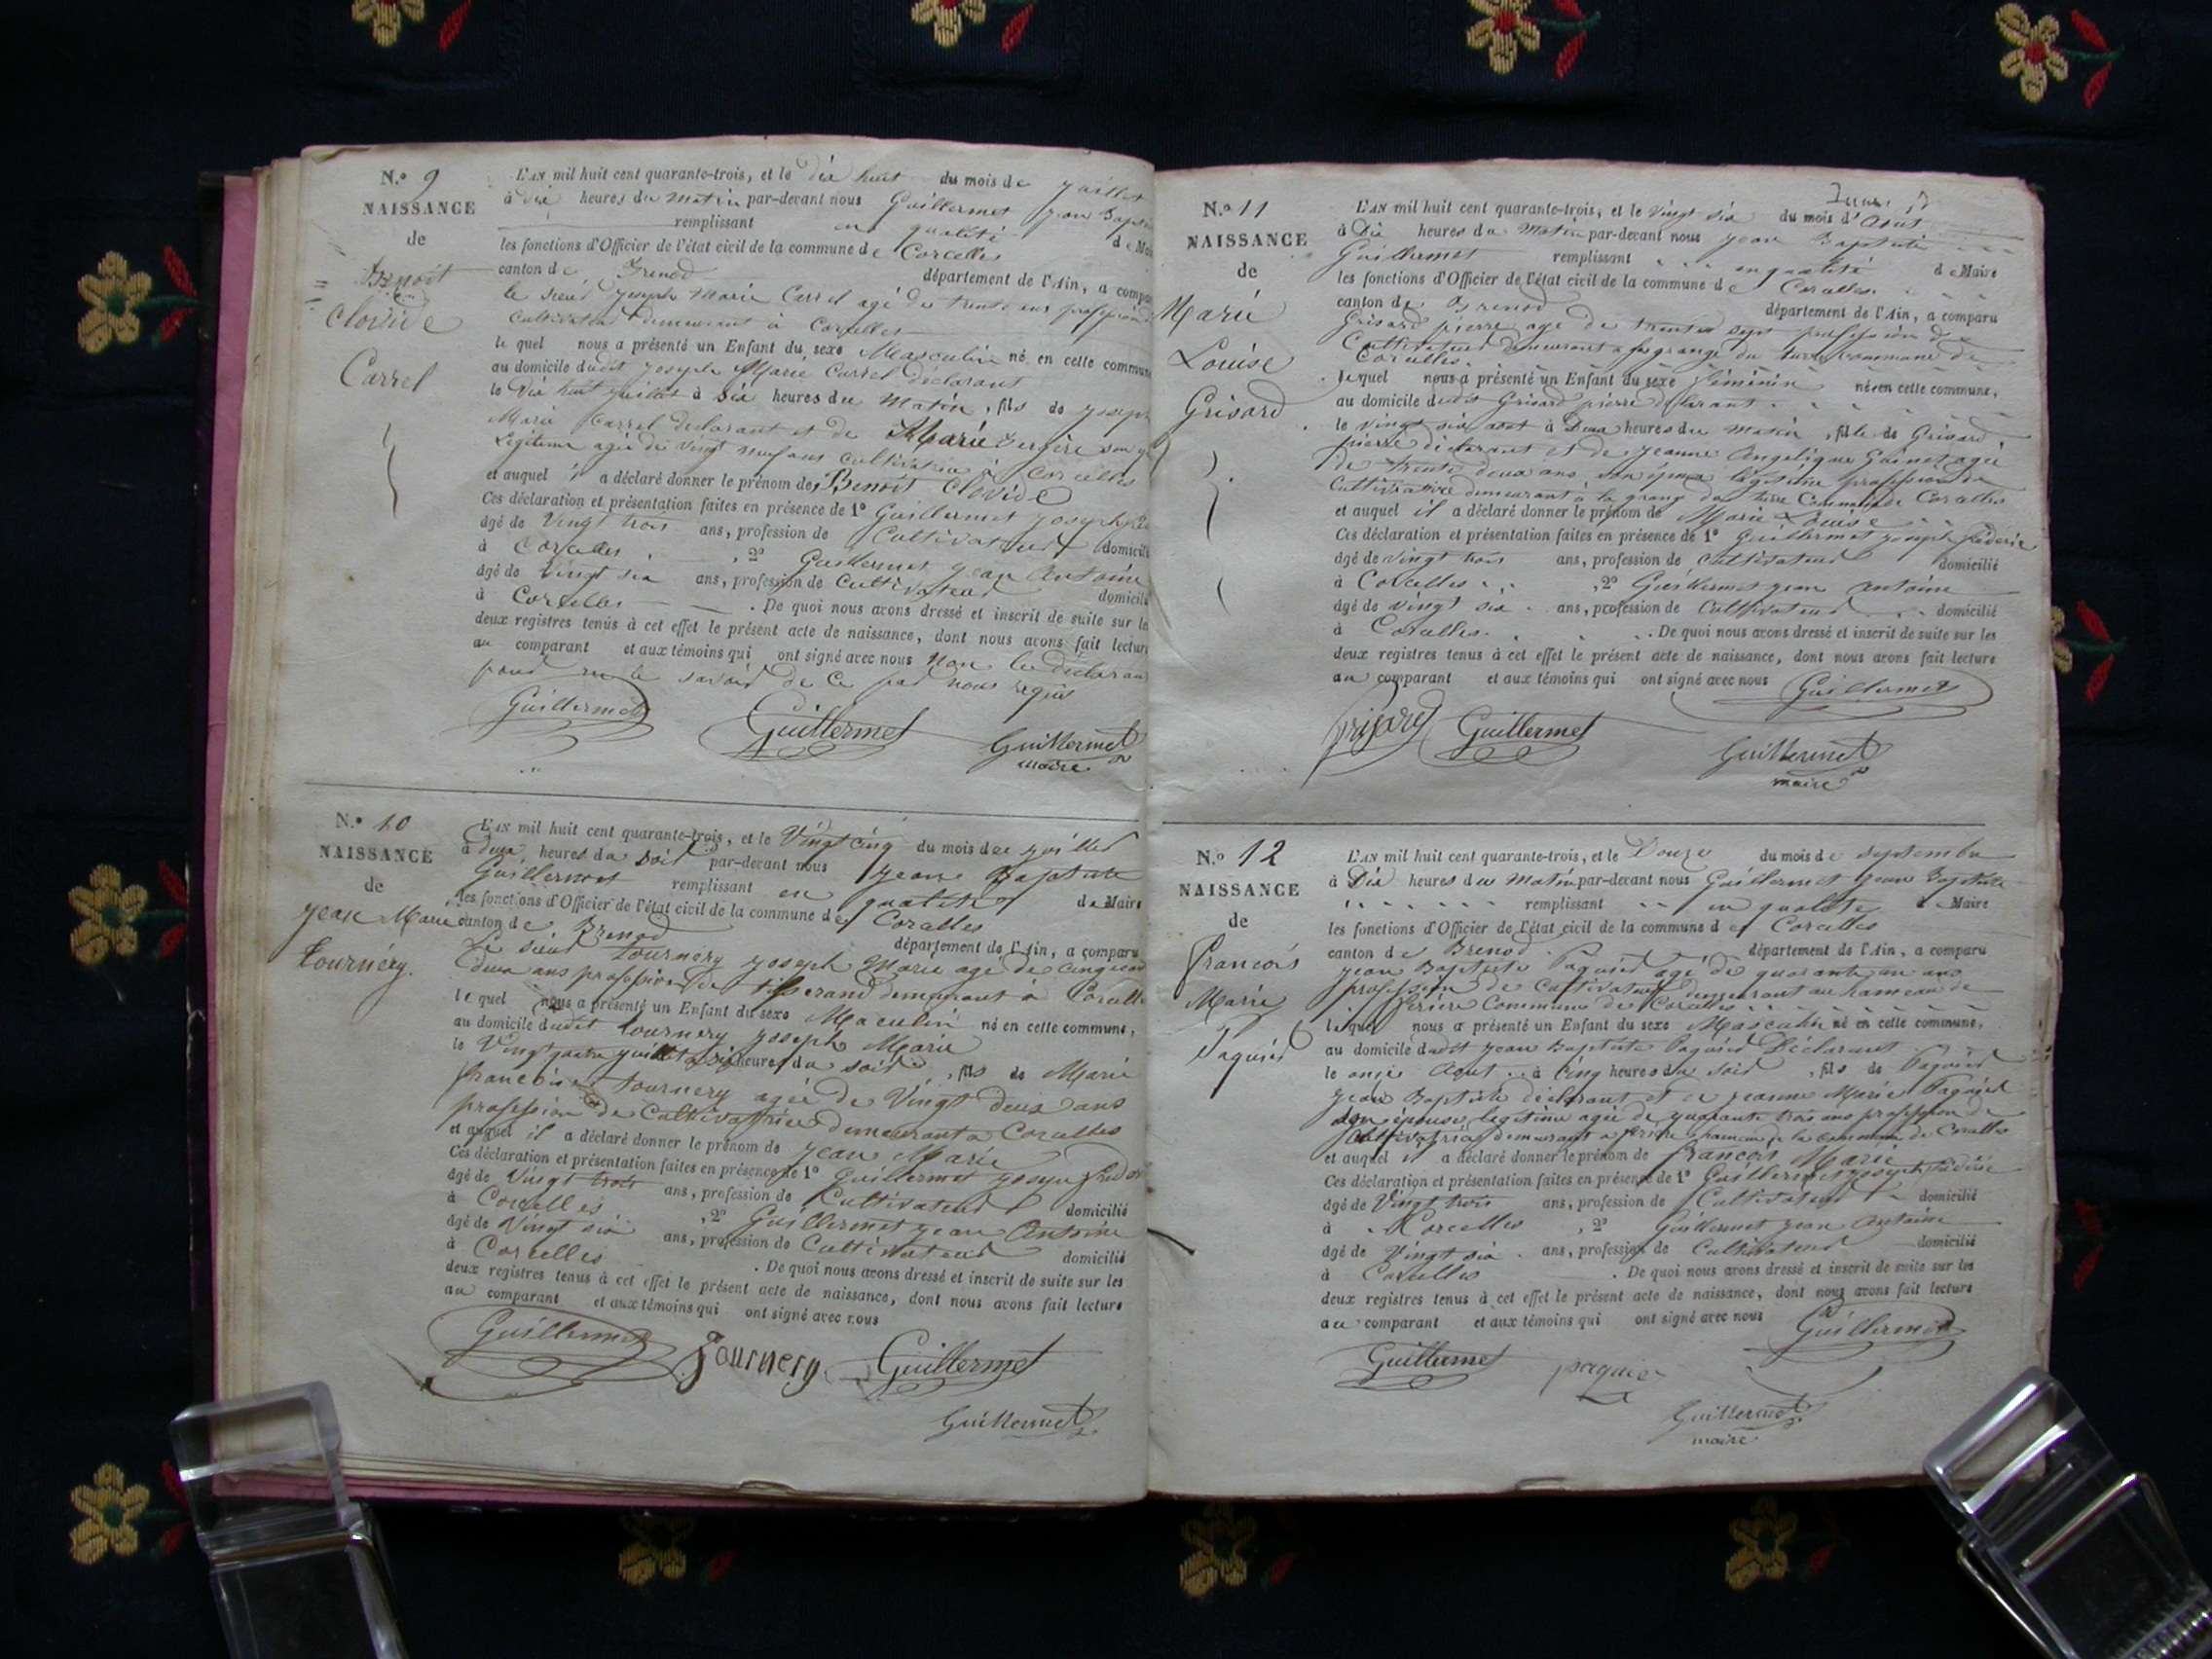 N.° 9
NAISSANCE
de
Benoit
Clovide
Carrel
L'AN mil huit cent quarante-trois, et le dix huit du mois de juillet
à dix heures du matin par-devant nous Guillermet jean Baptiste
remplissant en qualité de Maire
les fonctions d'Officier de l'état civil de la commune de Corcelles
canton de Brenod département de l'Ain, a comparu
le sieur joseph Marie Carrel agé de trente ans profession de
Cultivateur demeurant à Corcelles
lequel nous a présenté un Enfant du sexe Masculin né en cette commune
au domicile dudit joseph Marie Carrel déclarant
le dix huit juillet à six heures du Matin, fils de joseph
Marie Carrel declarant et de Marie son
Légitime agée de vingt neuf ans cultivatrice à Corcelles
et auquel il a déclaré donner le prénom de Benoit Clovide
Ces déclaration et présentation faites en présence de 1° Guillermet joseph
âgé de vingt trois ans, profession de Cultivateur domicilié
à Corcelles . , 2° Guillermet jean Antoine
âgé de vingt six ans, profession de Cultivateur domicilié
à Corcelles . De quoi nous avons dressé et inscrit de suite sur les
deux registres tenus à cet effet le présent acte de naissance, dont nous avons fait lecture
au comparant et aux témoins qui ont signé avec nous non le déclarant
pour ne le savoir de ce par nous requis
Guillermet Guillermet Guillermet
maire
N.° 10
NAISSANCE
de
jean Marie
tournery.
L'AN mil huit cent quarante-trois, et le Vingt cinq du mois de juillet
à deux heures du soir par-devant nous jean Baptiste
Guillermet remplissant en qualité de Maire
les fonctions d'Officier de l'état civil de la commune de Corcelles
canton de Brenod département de l'Ain, a comparu
Le sieur tournery joseph Marie agé de cinquante
deux ans profession de tisserand demeurant à Corcelles
lequel nous a présenté un Enfant du sexe Maculin né en cette commune,
au domicile dudit tournery joseph Marie
le Vingt quatre juillet à six heures du soir, fils de Marie
francoise tournery agée de Vingt deux ans
profession de Cultivatrice demeurant à Corcelles
et auquel il a déclaré donner le prénom de jean Marie
Ces déclaration et présentation faites en présence de 1° Guillermet joseph
âgé de Vingt trois ans, profession de Cultivateur domicilié
à Corcelles , 2° Guillermet jean Antoine
âgé de Vingt six ans, profession de Cultivateur domicilié
à Corcelles . De quoi nous avons dressé et inscrit de suite sur les
deux registres tenus à cet effet le présent acte de naissance, dont nous avons fait lecture
au comparant et aux témoins qui ont signé avec nous
Guillermet Tournery Guillermet
Guillermet
N.° 11
NAISSANCE
de
Marie
Louise
Grisard
L'AN mil huit cent quarante-trois, et le vingt six du mois d'Aout
à Dix heures du Matin par-devant nous jean Baptiste
Guillermet remplissant en qualité de Maire
les fonctions d'Officier de l'état civil de la commune de Corcelles
canton de Brenod département de l'Ain, a comparu
Grisard pierre agé de trente sept profession de
Cultivateur demeurant a grange du commune de
Corcelles.
lequel nous a présenté un Enfant du sexe féminin né en cette commune,
au domicile dudit Grisard pierre déclarant
le vingt six aout à Deux heures du matin, fille de Grisard
pierre déclarant et de jeanne Angelique agée
de trente deux ans son épouse légitime profession de
Cultivatrice demeurant à la grange du Commune de Corcelles
et auquel il a déclaré donner le prénom de Marie Louise
Ces déclaration et présentation faites en présence de 1° Guillermet joseph féderic
âgé de vingt trois ans, profession de Cultivateur domicilié
à Corcelles , 2° Guillermet jean Antoine
âgé de vingt six ans, profession de Cultivateur domicilié
à Corcelles. . De quoi nous avons dressé et inscrit de suite sur les
deux registres tenus à cet effet le présent acte de naissance, dont nous avons fait lecture
au comparant et aux témoins qui ont signé avec nous Guillermet
Grisard Guillermet
Guillermet
maire
N.° 12
NAISSANCE
de
francois
Marie
Paquier
L'AN mil huit cent quarante-trois, et le Douze du mois de septembre
à Dix heures du Matin par-devant nous Guillermet jean Baptiste
remplissant en qualité de Maire
les fonctions d'Officier de l'état civil de la commune de Corcelles
canton de Brenod. département de l'Ain, a comparu
jean Baptiste Paquier agé de quarante un ans
profession de Cultivateur demeurant au hameau de
Commune de Corcelles
lequel nous a présenté un Enfant du sexe Masculin né en cette commune,
au domicile dudit jean Baptiste Paquier Déclarant
le onze Aout à cinq heures du soir, fils de Paquier
jean Baptiste déclarant et de jeanne Marie Paquier
son épouse legitime agée de quarante trois ans profession de
Cultivatrice demeurant a hameau de la commune de Corcelles
et auquel il a déclaré donner le prénom de francois Marie
Ces déclaration et présentation faites en présence de 1° Guillermet joseph féderic
âgé de Vingt trois ans, profession de Cultivateur domicilié
à Corcelles , 2° Guillermet jean Antoine
âgé de Vingt six ans, profession de Cultivateur domicilié
à Corcelles . De quoi nous avons dressé et inscrit de suite sur les
deux registres tenus à cet effet le présent acte de naissance, dont nous avons fait lecture
au comparant et aux témoins qui ont signé avec nous Guillermet
Guillermet paquier
Guillermet
maire